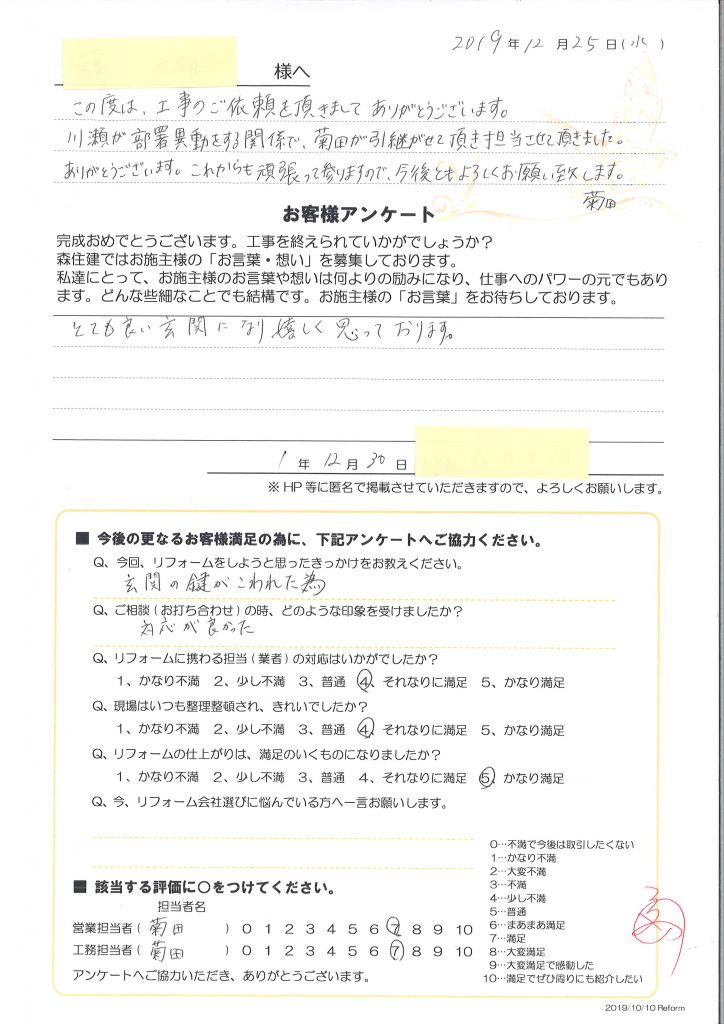 2019年12月25日(水)
様へ
この度は、工事のご依頼を頂きまして ありがとうございます。
川瀬が部署異動をする関係で、菊田が引継がせて頂き担当させて頂きました。
ありがとうございます。これからも頑張って参りますので、今後ともよろしくお願い致します。
菊田
お客様アンケート
完成おめでとうございます。工事を終えられていかがでしょうか?
森住建ではお施主様の「お言葉・想い」を募集しております。
私達にとって、お施主様のお言葉や想いは何よりの励みになり、仕事へのパワーの元でもあり
ます。どんな些細なことでも結構です。お施主様の「お言葉」をお待ちしております。
とても良い玄関になり嬉しく思っております。
1年12月30日
※HP等に匿名で掲載させていただきますので、よろしくお願いします。
■ 今後の更なるお客様満足の為に、下記アンケートへご協力ください。
Q、今回、リフォームをしようと思ったきっかけをお教えください。
玄関の鍵がこわれた為
Q、ご相談(お打ち合わせ)の時、どのような印象を受けましたか?
対応が良かった
Q、リフォームに携わる担当(業者)の対応はいかがでしたか?
1、かなり不満 2、少し不満 3、普通 4、それなりに満足 5、かなり満足
Q、現場はいつも整理整頓され、きれいでしたか?
1、かなり不満 2、少し不満 3、普通 4、それなりに満足 5、かなり満足
Q、リフォームの仕上がりは、満足のいくものになりましたか?
1、かなり不満 2、少し不満 3、普通 4、それなりに満足 5、かなり満足
Q、今、リフォーム会社選びに悩んでいる方へ一言お願いします。
■ 該当する評価に○をつけてください。
担当者名
営業担当者(菊田)0 1 2 3 4 5 6 7 8 9 10
工務担当者(菊田)0 1 2 3 4 5 6 7 8 9 10
アンケートへご協力いただき、ありがとうございます。
0…不満で今後は取引したくない
1…かなり不満
2…大変不満
3…不満
4…少し不満
5…普通
6…まあまあ満足
7…満足
8…大変満足
9…大変満足で感動した
10…満足でぜひ周りにも紹介したい
2019/10/10 Reform